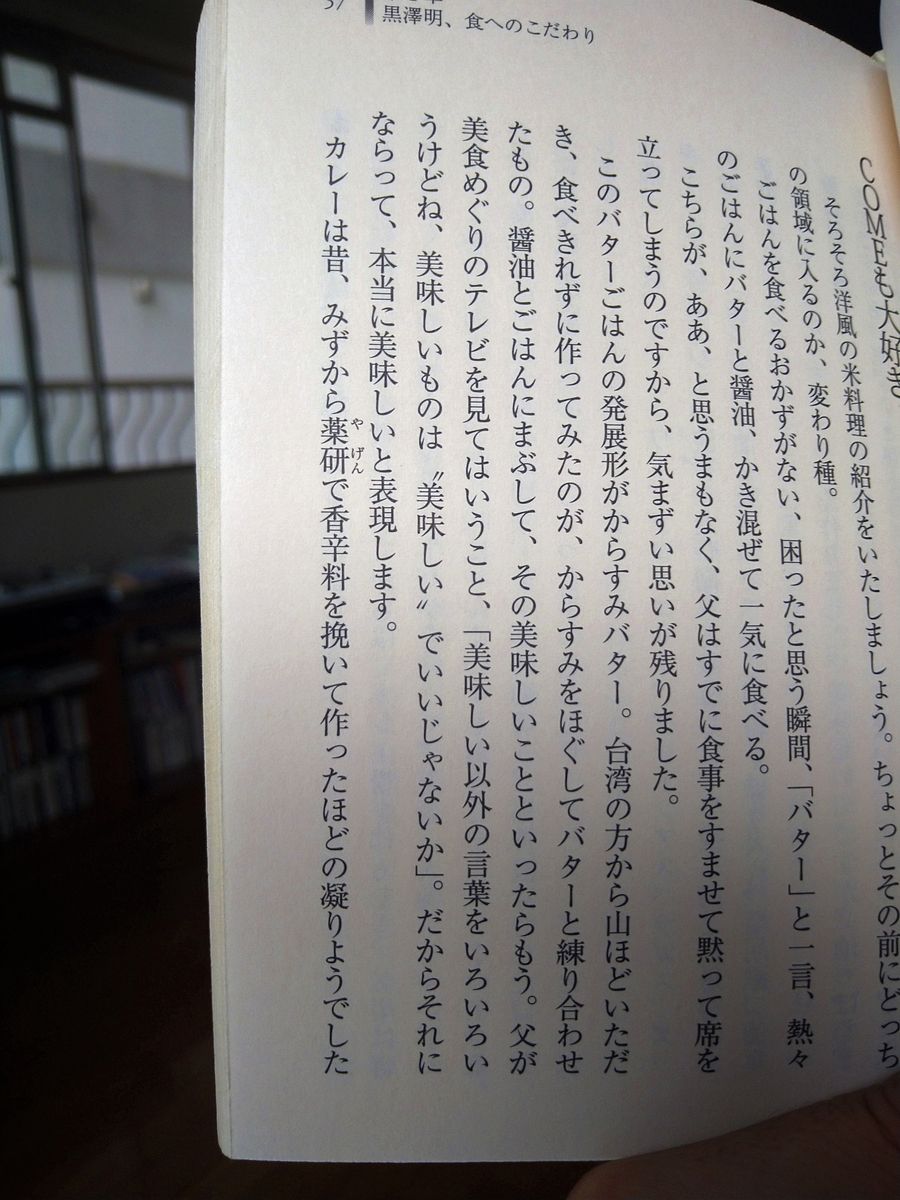 黒澤明、食へのこだわり
COMEも大好き
そろそろ洋風の米料理の紹介をいたしましょう。ちょっとその前にどっち
の領域に入るのか、変わり種。
ごはんを食べるおかずがない、困ったと思う瞬間、「バター」と一言、熱々
のごはんにバターと醤油、かき混ぜて一気に食べる。
こちらが、ああ、と思うまもなく、父はすでに食事をすませて黙って席を
立ってしまうのですから、気まずい思いが残りました。
このバターごはんの発展形がからすみバター。台湾の方から山ほどいただ
き、食べきれずに作ってみたのが、からすみをほぐしてバターと練り合わせ
たもの。醤油とごはんにまぶして、その美味しいことといったらもう。父が
美食めぐりのテレビを見てはいうこと、「美味しい以外の言葉をいろいろい
うけどね、美味しいものは〝美味しい〟でいいじゃないか」。だからそれに
ならって、本当に美味しいと表現します。
カレーは昔、みずから薬研で香辛料を挽いて作ったほどの凝りようでした
やげん